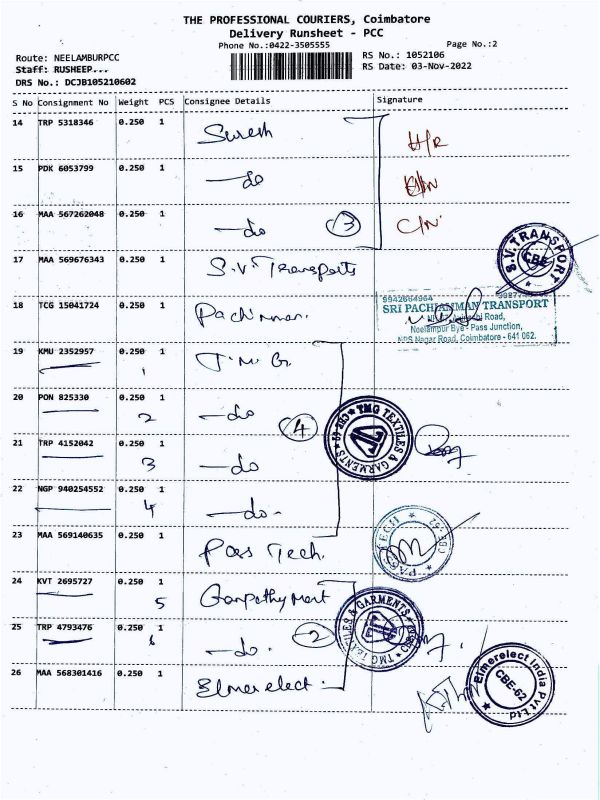 THE PROFESSIONAL COURIERS, Coimbatore
Delivery Runsheet - PCC
Phone No.:0422-3505555
Page No.:2
Route: NEELAMBURPCC
RS No.: 1052106
Staff: RUSHEEP...
RS Date: 03-Nov-2022
DRS No.: DCJB105210602
S No Consignment No Weight PCS Consignee Details Signature
14 TRP 5318346 0.250 1 Suresh H/R
15 PDK 6053799 0.250 1 —do
16 MAA 567262048 0.250 1 —do 3 C/N
17 MAA 569676343 0.250 1 S.V. Transports
S.V. TRANSPORT CBE
18 TCG 15041724 0.250 1
SRI PACHIAMMAN TRANSPORT
Road,
Neelampur Bye - Pass Junction,
NPS Nagar Road, Coimbatore - 641 062.
19 KMU 2352957 0.250 1 T.M.G.
1
20 PON 825330 0.250 1 —do
2 4
TMG TEXTILES & GARMENTS
21 TRP 4152042 0.250 1 —do
3
22 NGP 940254552 0.250 1 —do-
4
23 MAA 569140635 0.250 1 Pass Tech.
24 KVT 2695727 0.250 1
5
TMG TEXTILES & GARMENTS
25 TRP 4793476 0.250 1 —do. 2
6
26 MAA 568301416 0.250 1 Elmerelect
Elmerelect India Pvt Ltd CBE-62